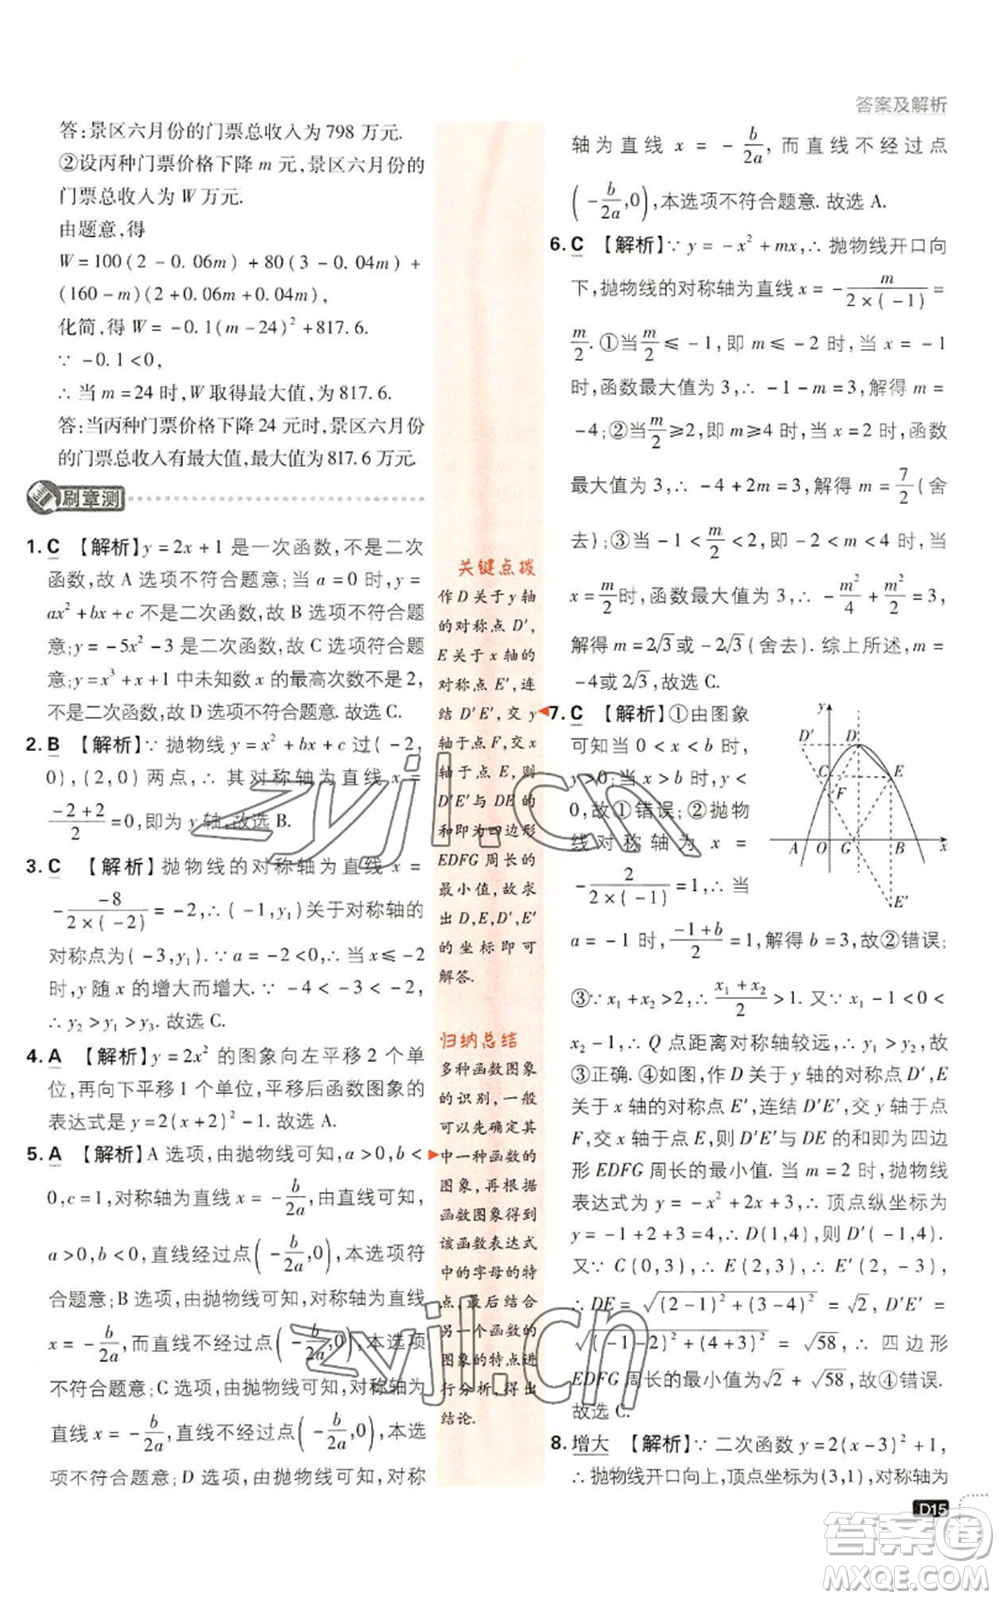 答案及解析
答:景区六月份的门票总收入为 798 万元.
②设丙种门票价格下降 m 元,景区六月份的
门票总收入为 W 万元.
由题意,得
W = 100(2 - 0.06m) + 80(3 - 0.04m) +
(160 - m)(2 + 0.06m + 0.04m),
化简,得 W = -0.1(m - 24)² + 817.6.
∵ -0.1 < 0,
∴ 当 m = 24 时,W 取得最大值,为 817.6.
答:当丙种门票价格下降 24 元时,景区六月份
的门票总收入有最大值,最大值为 817.6 万元.
刷章测
1. C 【解析】y = 2x + 1 是一次函数,不是二次
函数,故 A 选项不符合题意;当 a = 0 时,y =
ax² + bx + c 不是二次函数,故 B 选项不符合题
意;y = -5x² - 3x 是二次函数,故 C 选项符合题
意;y = x³ + x + 1 中未知数 x 的最高次数不是 2,
不是二次函数,故 D 选项不符合题意.故选 C.
2. B 【解析】∵ 抛物线 y = x² + bx + c 过(-2,
0),(2,0)两点,∴ 其对称轴为直线 x =
(-2+2)/2 = 0,即为 y 轴,故选 B.
3. C 【解析】抛物线的对称轴为直线 x =
- (-8)/(2×(-2)) = -2,∴(-1,y₁)关于对称轴的
对称点为(-3,y₁).∵ a < 0,∴ 当 x < -2
时,y 随 x 的增大而增大.∵ -4 < -3 < -2,
∴ y₂ > y₁ > y₃.故选 C.
4. A 【解析】y = 2x² 的图象向左平移 2 个单
位,再向下平移 1 个单位,平移后函数图象的
表达式是 y = 2(x + 2)² - 1.故选 A.
5. A 【解析】A 选项,由抛物线可知,a > 0,b <
0,c = 1,对称轴为直线 x = -b/2a,由直线可知,
a > 0,b < 0,直线经过点(-b/2a,0),本选项符
合题意;B 选项,由抛物线可知,对称轴为直线
x = -b/2a,而直线不经过点(-b/2a,0),本选项
不符合题意;C 选项,由抛物线可知,对称轴为
直线 x = -b/2a,而直线不经过点(-b/2a,0),本选
项不符合题意;D 选项,由抛物线可知,对称
关键点拨
作 D 关于 y 轴
的对称点 D',
E 关于 x 轴的
对称点 E',连
结 D'E',交 y
轴于点 F,交 x
轴于点 G,则
D'E'与 DE 的
和即为四边形
EDFG 周长的
最小值,故求
出 D,E,D',E'
的坐标即可
解答.
归纳总结
多种函数图象
的识别,一般
可以先确定其
中一种函数的
图象,再根据
函数图象得到
该函数表达式
中的字母的特
点,最后结合
另一个函数的
图象的特点进
行分析,得出
结论.
轴为直线 x = -b/2a,而直线不经过点
(-b/2a,0),本选项不符合题意.故选 A.
6. C 【解析】∵ y = -x² + mx,∴ 抛物线开口向
下,抛物线的对称轴为直线 x = - m/(2×(-1)) =
m/2.①当 m/2 ≤ -1,即 m ≤ -2 时,当 x = -1
时,函数最大值为 3,∴ -1 - m = 3,解得 m =
-4;②当 m/2 ≥ 2,即 m ≥ 4 时,当 x = 2 时,函数
最大值为 3,∴ -4 + 2m = 3,解得 m = 7/2(舍
去);③当 -1 < m/2 < 2,即 -2 < m < 4 时,当
x = m/2 时,函数最大值为 3,∴ -m²/4 + m²/2 = 3,
解得 m = 2√3或 -2√3(舍去).综上所述,m =
-4或 2√3,故选 C.
7. C 【解析】①由图象
可知当 0 < x < b 时,
y > 0;当 x > b 时,y <
0,故①错误;②抛物
线对称轴为 x =
- 2/(2×(-1)) = 1,∴ 当
a = -1 时,(-1+b)/2 = 1,解得 b = 3,故②错误;
③∵ x₁ + x₂ > 2,∴ (x₁+x₂)/2 > 1.又∵ x₁ < 1 <
x₂,∴ Q 点距离对称轴较远,∴ y₁ > y₂,故
③正确.④如图,作 D 关于 y 轴的对称点 D',E
关于 x 轴的对称点 E',连结 D'E',交 y 轴于点
F,交 x 轴于点 G,则 D'E'与 DE 的和即为四边
形 EDFG 周长的最小值.当 m = 2 时,抛物线
表达式为 y = -x² + 2x + 3,∴ 顶点纵坐标为
y = -1 + 2 + 3 = 4,∴ D(1,4),D'(-1,4).
又∵ C(0,3),∴ E(2,3),∴ E'(2,-3),
∴ DE = √((2-1)² + (3-4)²) = √2,D'E' =
√((2+1)² + (4+3)²) = √58,∴ 四边形
EDFG 周长的最小值为√2 + √58,故④错误.
故选 C.
D' y D
C E
F
A O G B x
E'
8. 增大 【解析】∵ 二次函数 y = 2(x - 3)² + 1,
∴ 抛物线开口向上,顶点坐标为(3,1),对称轴为
D15
zyjl.cn
zyjl.cn
答案圈
MXQE.COM